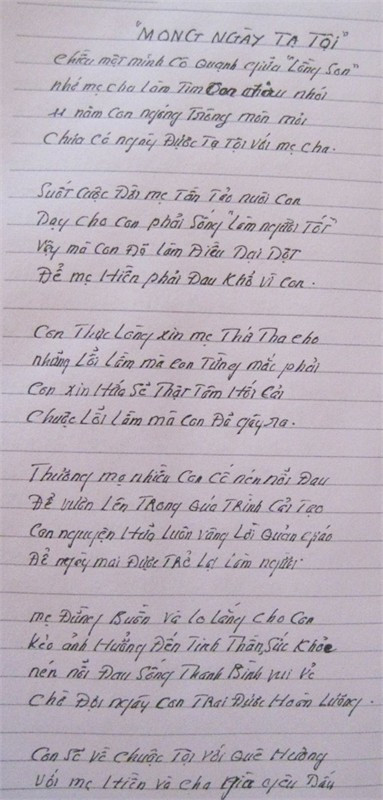 "MONG NGÀY TẠ TỘI"
Chiều một mình cô quạnh giữa "Lồng Son"
nhớ mẹ cha làm Tim Con nhói
11 năm Con ngóng Trông mòn mỏi
Chưa có ngày Được Tạ Tội với mẹ cha.
Suốt cuộc Đời mẹ Tần Tảo nuôi Con
Dạy cho Con phải Sống "Làm người Tốt"
Vậy mà Con Đã làm Điều Dại Dột
Để mẹ Hiền phải Đau Khổ vì Con.
Con Thực Lòng xin mẹ Thứ Tha cho
những Lỗi Lầm mà Con Từng mắc phải
Con xin Hứa Sẽ Thật Tâm Hối Cải
Chuộc Lỗi Lầm mà Con Đã gây ra.
Thương mẹ nhiều Con cố nén nỗi Đau
Để vươn Lên TRong Quá TRình Cải Tạo
Con nguyện Hứa Luôn Vâng Lời Quản giáo
Để ngày mai Được TRở Lại Làm người.
mẹ Đừng Buồn và lo lắng cho Con
Kẻo ảnh Hưởng Đến Tinh Thần, Sức Khỏe
nén nỗi Đau Sống Thanh Bình vui vẻ
Chờ Đợi ngày Con TRai Được Hoàn Lương.
Con Sẽ về chuộc Tội với Quê Hương
Với mẹ Hiền và cha già yêu Dấu